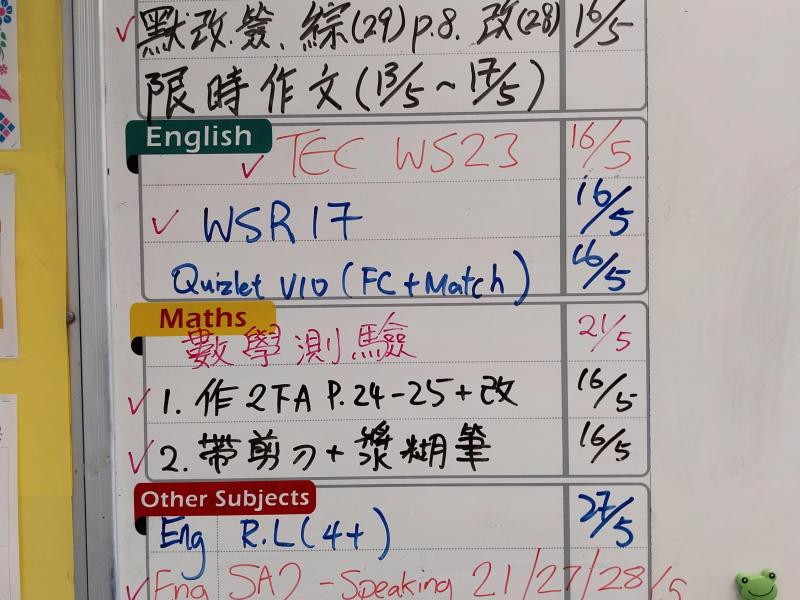 ✓ 默改.簽、綜(29)p.8. 改(28) 16/5
限時作文(13/5~17/5)
English
✓ TEC WS23 16/5
✓ WSR17 16/5
Quizlet V10 (FC+Match) 16/5
Maths
數學測驗 21/5
✓ 1. 作2下A P.24-25+改 16/5
✓ 2. 帶剪刀+漿糊筆 16/5
Other Subjects
Eng R.L(4+) 27/5
✓ Eng SA2 - Speaking 21/27/28/5